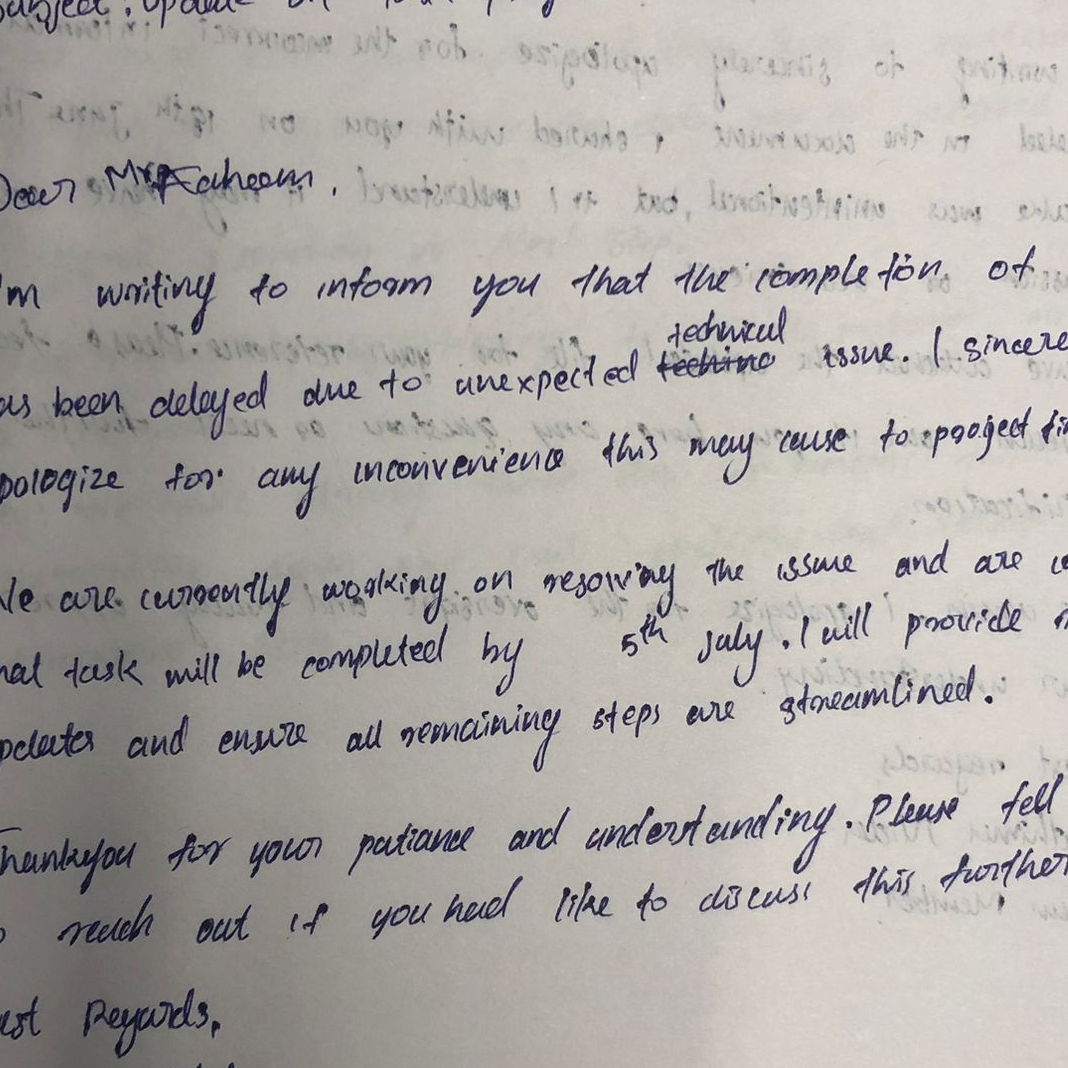 Subject: Update on
Dear Mr. Faheem,
I'm writing to inform you that the completion of
as been delayed due to unexpected technical issue. I sincere
pologize for any inconvenience this may cause to project tim
We are currently working on resolving the issue and are co
nal task will be completed by 5th July. I will provide
pdates and ensure all remaining steps are streamlined.
Thankyou for your patiance and understanding. Please fell
o reach out if you had like to discuss this further
est Regards,